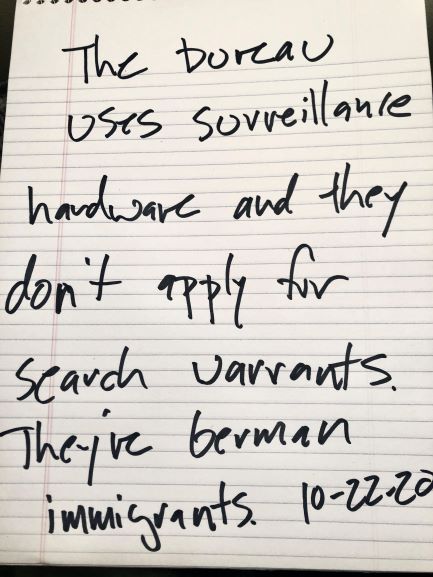 The bureau
uses surveillance
hardware and they
don't apply for
search warrants.
They're German
immigrants. 10-22-20